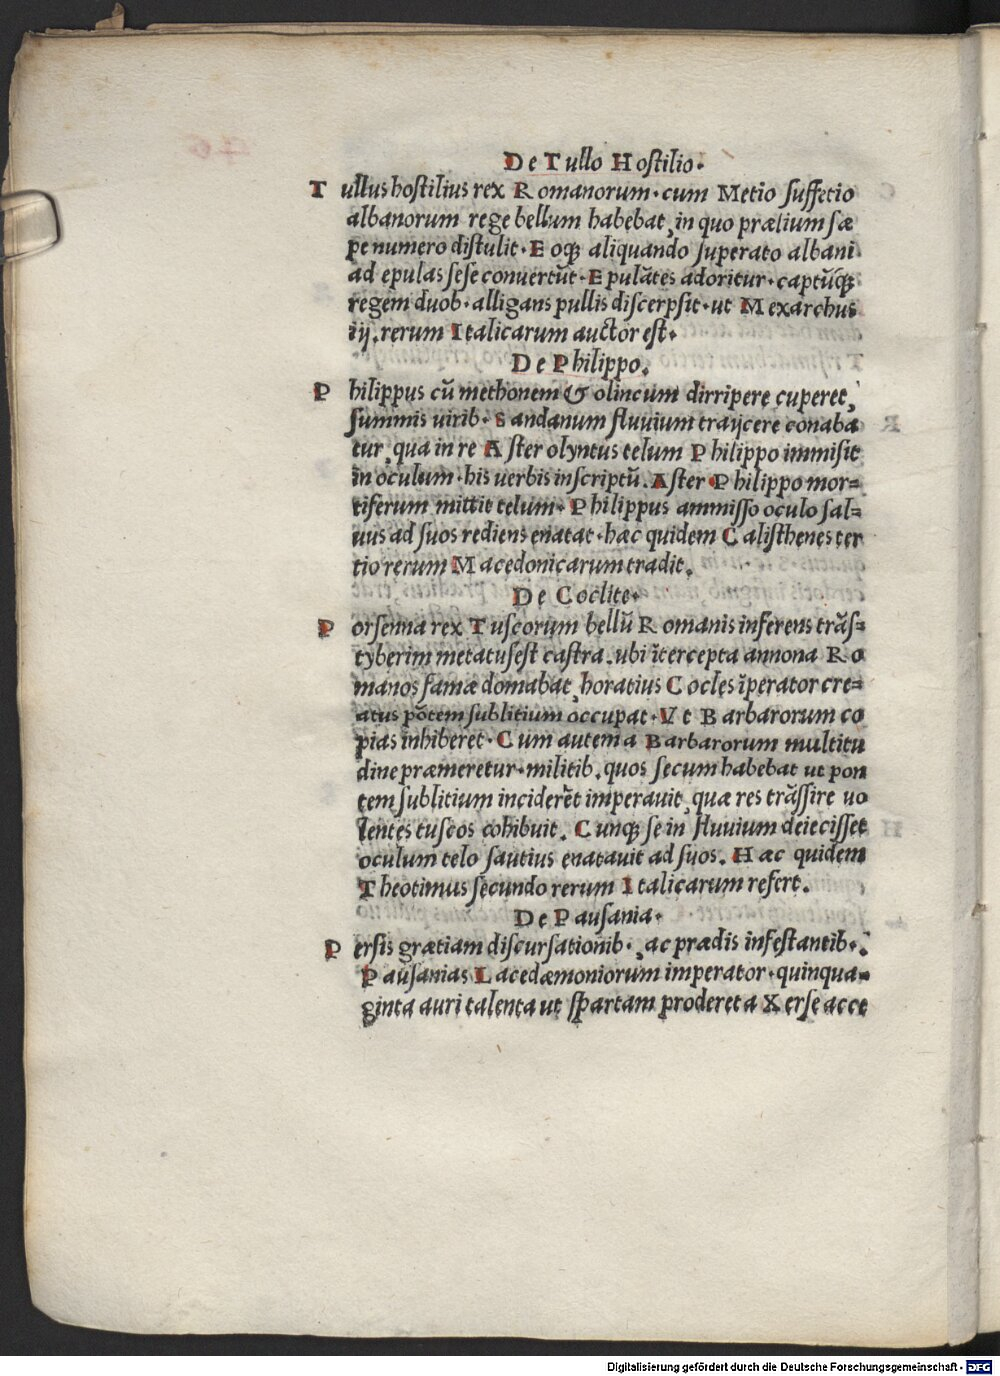 De Tullo Hostilio.
Tullus hostilius rex Romanorum. cum Metio suffetio
albanorum rege bellum habebat, in quo prælium sæ
pe numero distulit. Eoqꝫ aliquando superato albani
ad epulas sese conuertūt. Epulātes adoritur. captūqꝫ
regem duob. alligans pullis discerpsit. ut Mexarchus
iij. rerum Italicarum auctor est.
De Philippo.
Philippus cū methonem & olincum dirripere cuperet,
summis uirib. Sandanum fluuium traijcere conaba
tur, qua in re Aster olyntus telum Philippo immisit
in oculum. his uerbis inscriptū. Aster Philippo mor=
tiferum mittit telum. Philippus ammisso oculo sal=
uus ad suos rediens enatat. hæc quidem Calisthenes ter
tio rerum Macedonicarum tradit.
De Coclite.
Porsenna rex Tuscorum bellū Romanis inferens trās=
tyberim metatus est castra. ubi ītercepta annona Ro
manos famæ domabat, horatius Cocles īperator cre=
atus pōtem sublitium occupat. Vt Barbarorum co
pias inhiberet. Cum autem a Barbarorum multitu
dine præmeretur. militib. quos secum habebat ut pon
tem sublitium inciderēt imperauit, quæ res trāssire uo
lentes tuscos cohibuit. Cunqꝫ se in fluuium deiecisset
oculum telo sautius enatauit ad suos. Hæc quidem
Theotimus secundo rerum Italicarum refert.
De Pausania.
Persis grætiam discursationib. , ac prædis infestantib.
Pausanias Lacedæmoniorum imperator. quinqua=
ginta auri talenta ut spartam proderet a Xerse acce
Digitalisierung gefördert durch die Deutsche Forschungsgemeinschaft - DFG